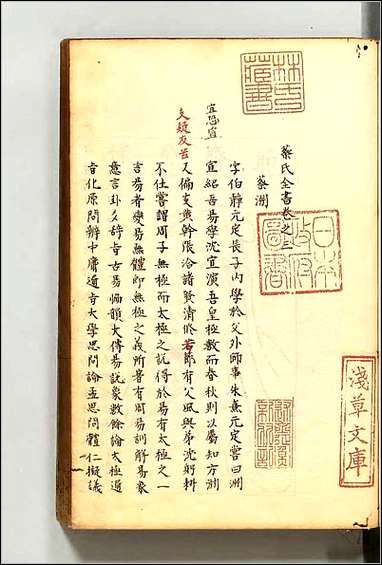 蔡氏全書卷之三
蔡淵
字伯靜元定長子內學於父外師事朱熹元定嘗曰淵
宜紹吾易學沈宜演吾皇極數而春秋則以屬知方淵
又偏友黃幹張洽諸賢清脩若節有父風與弟沈躬耕
不仕嘗謂周子無極而太極之說得於易有太極之一
言易者變易無體即無極之義所著有周易訓解易象
意言卦爻辞古易協韻大傳易說象數餘論太極通
旨化原問辨中庸通旨大學思問論孟思問體仁擬議
宜恐當
友疑
林氏藏書
日本政府圖書
淺草文庫